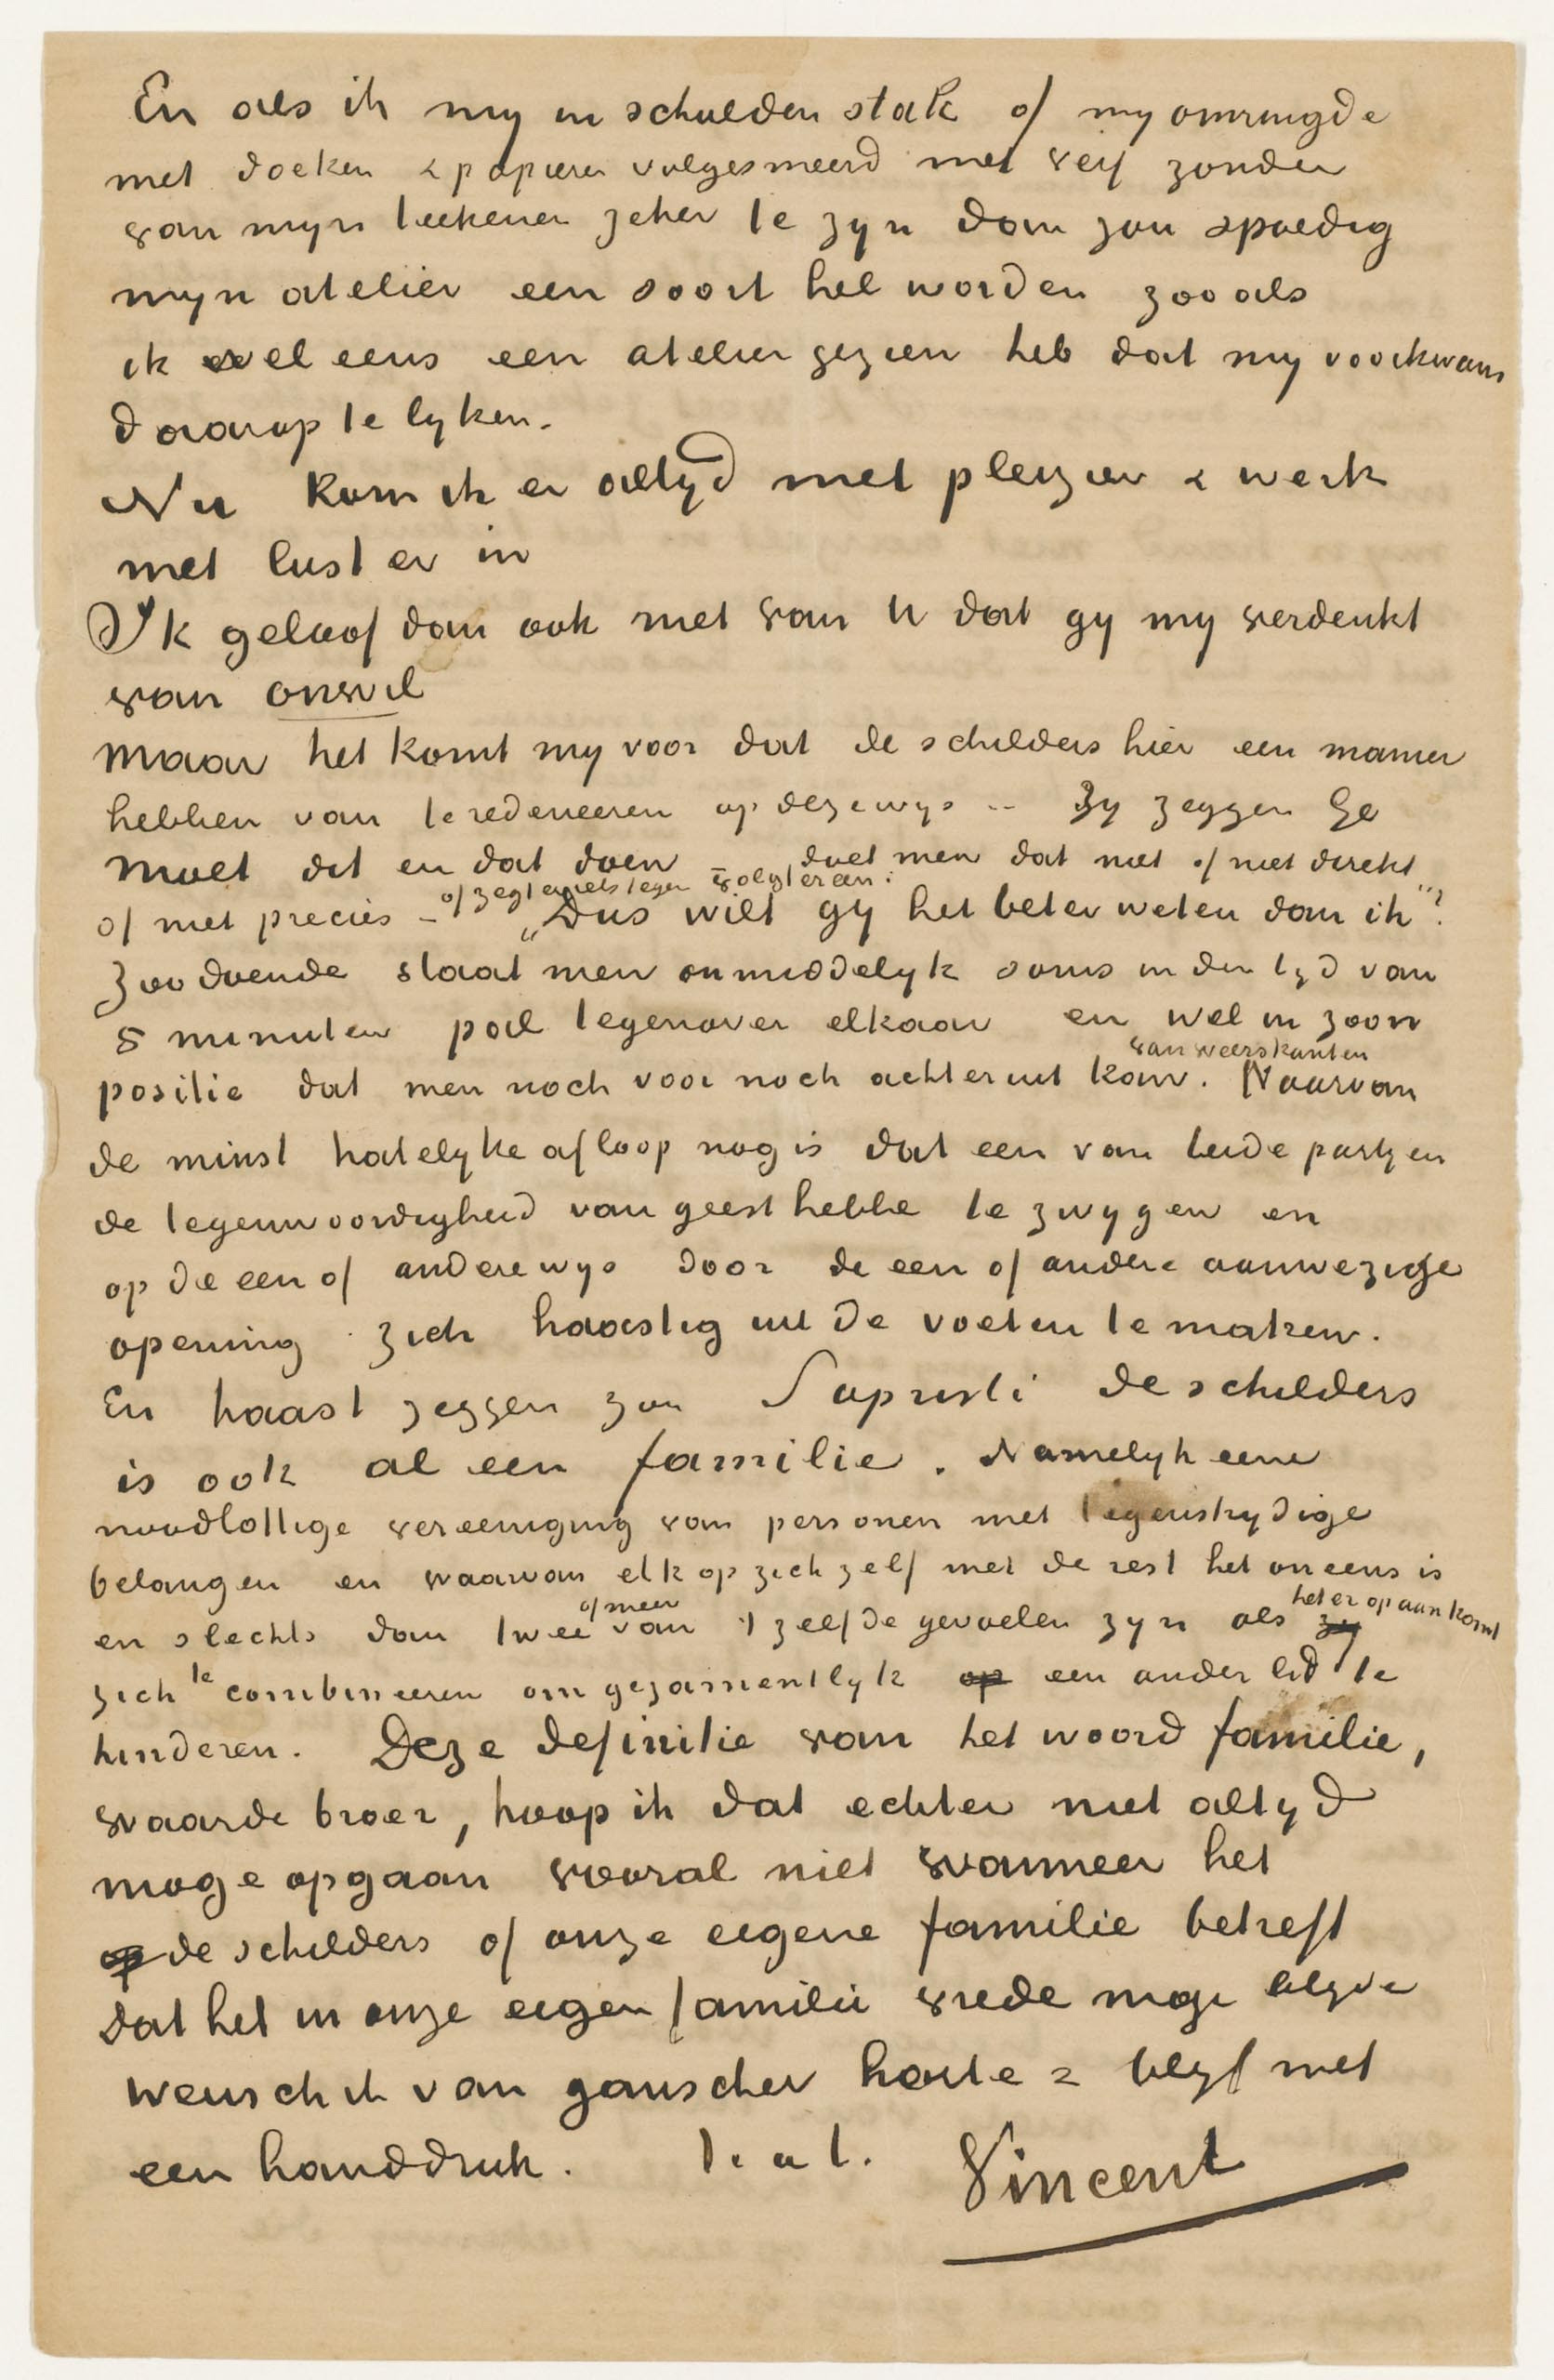 En als ik my in schulden stak of my omringde
met doeken & papieren volgesmeerd met verf zonder
van myn teekenen zeker te zyn dan zou spoedig
myn atelier een soort hel worden zooals
ik wel eens een atelier gezien heb dat my voorkwam
daarop te lyken.
Nu kom ik er altyd met pleizier & werk
met lust er in
Ik geloof dan ook niet van U dat gy my verdenkt
van onwil
Maar het komt my voor dat de schilders hier een manier
hebben van te redeneeren op deze wys -- Zy zeggen Ge
moet dit en dat doen – doet men dat niet of niet direkt
of niet precies – of zegt er iets tegen volgt er een: „Dus wilt gy het beter weten dan ik”?
Zoodoende staat men onmiddelyk soms in den tyd van
5 minuten pal tegenover elkaar en wel in zoon
positie dat men noch voor noch achteruit kan. Waarvan
van weerskanten
de minst hatelyke afloop nog is dat een van beide partyen
de tegenwoordigheid van geest hebbe te zwygen en
op de een of andere wys door de een of andere aanwezige
opening zich haastig uit de voeten te maken.
En haast zeggen zou Sapristi de schilders
is ook al een familie. Namelyk eene
noodlottige vereeniging van personen met tegenstrydige
belangen en waarvan elk op zich zelf met de rest het oneens is
en slechts dan twee of meer van 't zelfde gevoelen zyn als zy het er op aan komt
zich te combineeren om gezamentlyk op een ander lid te
hinderen. Deze definitie van het woord familie,
waarde broer, hoop ik dat echter niet altyd
moge opgaan vooral niet wanneer het
op de schilders of onze eigene familie betreft
dat het in onze eigen familie vrede moge blyve
wensch ik van ganscher harte & blyf met
een handdruk. t. à t. Vincent